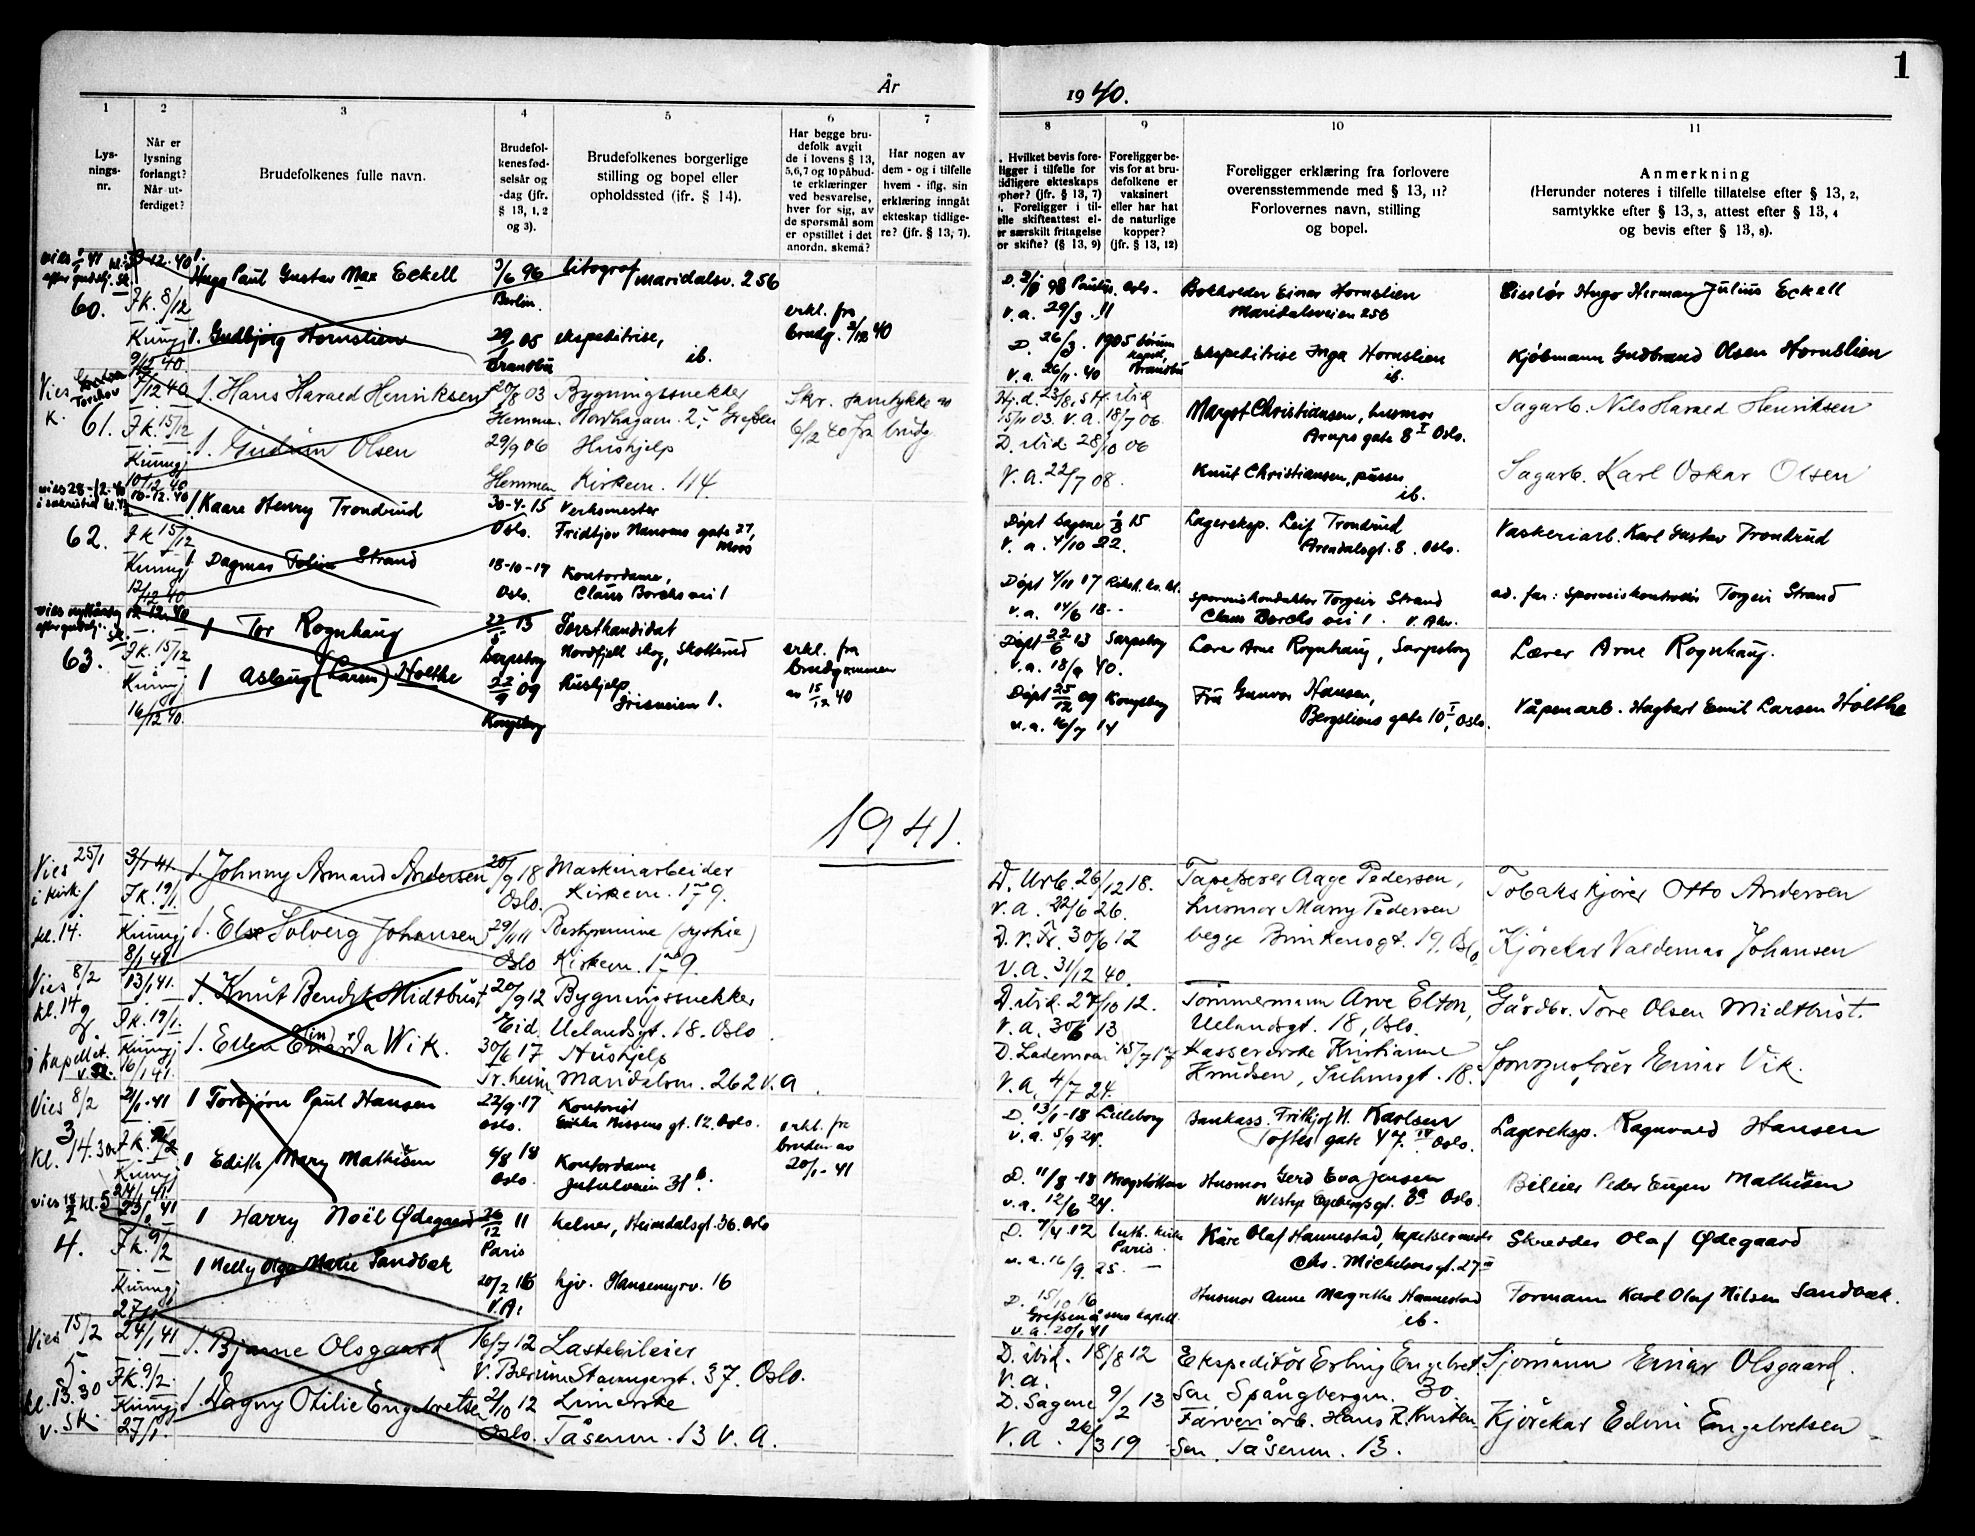 1
År
19 40.
1
2
3
4
5
6
7
8
9
10
11
Lys-
nings-
nr.
Når er
lysning
forlangt?
Når ut-
ferdiget?
Brudefolkenes fulle navn.
Brudefol-
kenes fød-
selsår og
-dag (jfr.
§ 13, 1, 2
og 3).
Brudefolkenes borgerlige
stilling og bopel eller
opholdssted (ifr. § 14).
Har begge bru-
defolk avgit
de i lovens § 13,
5,6,7 og 10 påbud-
te erklæringer
ved besvarelse,
hver for sig, av
de spørsmål som
er opstillet i det
anordn. skema?
Har nogen av
dem - og i tilfelle
hvem - iflg. sin
erklæring inngåt
ekteskap tidlige-
re? (jfr. § 13, 7).
Hvilket bevis fore-
ligger i tilfelle for
tidligere ekteskaps
ophør? (jfr. § 13, 7)
Foreligger i til-
felle skifteattest el-
er særskilt fritagelse
for skifte? (§ 13, 9)
Foreligger be-
vis for at bru-
defolkene er
vaksinert
eller har hat
de naturlige
kopper?
(jfr. § 13, 12)
Foreligger erklæring fra forlovere
overensstemmende med § 13, 11?
Forlovernes navn, stilling
og bopel.
Anmerkning
(Herunder noteres i tilfelle tillatelse efter § 13, 2,
samtykke efter § 13, 3, attest efter § 13, 4
og bevis efter § 13, 8).
60.
Fk. 8/12
Kunngj
9/12 40.
1. Hugo Paul Gustav Max Eckell
3/6 96
Berlin.
litograf maridalsv. 256
1. Gudbjørg Hornslien
29/ 05
ekspeditrise,
ib.
erkl. fra
brudg. 2/12 40
v.a. 29/3 11
Bokholder Einar Hornslien
Maridalsveien 256
Eisslør Hugo Herman Julius Eckell
v.a. 26/11. 40
Ekspeditrise Inga Hornslien
ib.
Kjøbmann Gudbrand Olsen Hornslien
Vies
K. 61.
7/12 40
Fk. 15/12
Kunngj
10/12 40
1. Hans Harald Henriksen
20/8 03
Hemnes
Bygningssnekker
Nordhagam. 2, Grefsen
1. Gudrun Olsen
29/9 06
Hemnes
Hushjelp
Kirkevn. 114.
Skr. samtykke av
6/12 40 fra brudg.
15/11 03. V.A. 18/7 06.
D. ibid. 28/10 06
V.A. 22/7 08.
Margot Christiansen, husmor
Arups gate 8 I Oslo.
Knut Christiansen,
ib.
Sagarb. Nils Harald Henriksen
Sagarb. Karl Oskar Olsen
vies 28-12-40
62.
10-12-40
Fk 15/12
Kunngj
12/12 40
1 Kaare Henry Trondrud
30-4-15
Oslo.
Verksmester
Fridtjov Nansens gate 27,
Moss
1 Dagmar Strand
18-10-17
Oslo.
Kontordame,
Claus Borchs vei 1
Døpt Sagene 1/3 15
v.a. 4/10 22.
Lagereksp. Leif Trondrud
Arendalsgt. 8. Oslo.
Vaskeriarb. Karl Gustav Trondrud
Døpt 4/11 17
v.a. 14/6 18
Sporveiskonduktør Torgeir Strand
Claus Borchs vei 1. V. Aker.
ad. far: sporveiskontrollør Torgeir Strand
63.
12-12-40
Fk. 15/12
Kunngj
16/12 40.
1 Tor Rognhaug
Sarpsborg
Forstkandidat
Nordfjell skog, Skotterud
1 Asbjug (Larsen) Holthe
22/9 09
Kongsberg
Hushjelp
Irisveien 1.
erkl. fra
brudgommen
av 15/12 40
Døpt 22/6 13 Sarpsborg
v.a. 18/9 40.
Lærer Arne Rognhaug, Sarpsborg
Lærer Arne Rognhaug.
Døpt 25/12 09 Kongsberg
v.a. 16/7 14
Fru Gunvor Hansen,
Bergsliens gate 10 I, Oslo.
Våpenarb. Hagbart Emil Larsen Holthe
1941.
Vies 25/1
i kirk.
kl. 14.
3/1 41.
Fk. 19/1.
Kunngj
8/1 41
1. Johnny Armand Andersen
20/9 18
Oslo.
Maskinarbeider
Kirkevn. 179.
1. Else Solveig Johansen
29/11 11
Oslo
Bestyrerinne (syskie)
Kirkevn. 179.
D. Urb. 26/12 18.
V.A. 22/6 26.
D. V.Fr. 30/6 12
V.A. 31/12 40.
Tapetserer Aage Pedersen,
husmor Marry Pedersen
begge Brinkensgt. 19. Oslo
Tobakskjører Otto Andersen
Kjørekar Valdemar Johansen
Vies 8/2
kl. 14
2
i kapellet.
13/1 41.
Fk. 19/1.
Kunngj
16/1 41.
1. Knut Bendik Midtbust
20/9 12
Eid.
Bygningssnekker
Uelandsgt. 18. Oslo
1. Ellen Einarda Wik.
30/6 17
Tr.heim
Hushjelp
Maridalsvn. 262 V.A.
D. ibid. 27/10 12.
V.A. 30/6 13
D. Lademoen 15/7 17
V.A. 4/7 24.
Tømmermann Arve Elton,
Uelandsgt. 18, Oslo.
Kassererske Kristianne
Knudsen, Suhmsgt. 18.
Gårdbr. Tore Olsen Midtbust.
Sporvognsfører Einar Vik.
Vies 8/2
3
kl. 14.30
21/1-41
Fk. 9/2
Kunngj
24/1 41
1 Torbjørn Paul Hansen
22/9-17
Oslo.
Kontorist
Erika Nissens gt. 12. Oslo.
1 Edith Mary Mathisen
6/8 18
Oslo.
Kontordame
Jutulveien 31 b.
erkl. fra
bruden av
20/1-41
D. 13/1-18 Lilleborg
v.a. 5/9 24.
Bankass. Fritjof N. Karlsen
Toftes gate 47. IV Oslo.
Lagereksp. Ragnvald Hansen
D. 11/8-18
v.a. 12/6 24.
Husmor Gerd Eva Jensen
Oslo.
Bileier Peder Eugen Mathisen
4.
23/1 41
Fk. 9/2
Kunngj
27/1
1 Harry Noël Ødegaard
26/12 11
Paris
kelner, Heimdalsgt. 36. Oslo
1 Nelly Olga Marie Sandbæk
20/2 16
V.A.
hjv. Hansemyrv. 16
D. 7/4-12 luth. kirke
Paris.
v.a. 16/9. 25.
Kåre Olaf Hannestad,
Chr. Michelsensgt. 27 III
Skredder Olaf Ødegaard
D. 15/10 16
Grefsen menighets kapell
v.a. 20/1 41
Husmor Anne Margrethe Hannestad
ib.
Formann Karl Olaf Nilsen Sandbæk.
Vies 15/2
5.
kl. 13.30
v. Sk.
24/1 41
Fk. 9/2.
Kunngj
27/1.
1. Bjarne Olsgaard
16/7 12
V. Bærum
Lastebileier
Stavangergt. 37. Oslo.
1. Dagny Otilie Engebretsen
2/10 12
Oslo.
Limerske
Tåsenvn. 13 V.A.
D. ibid. 18/8 12
V.a.
D. Sagene 9/2 13
V.A. 26/3 19
Ekspeditør Erling Engebret-
sen Spångbergvn. 30.
Farveriarb. Hans R. Kristen-
sen. Tåsenvn. 13.
Sjømann Einar Olsgaard.
Kjørekar Edvin Engebretsen